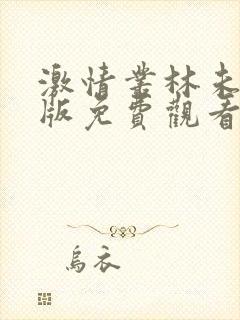 激情叢林未
版免費觀看
烏衣